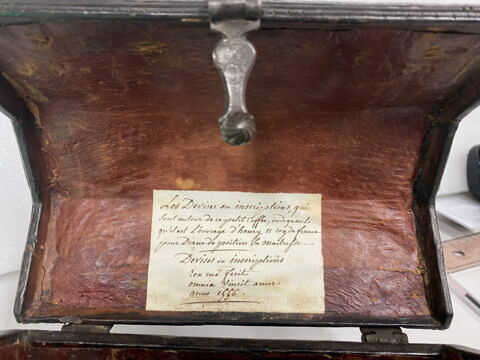 Les Devises ou inscriptions, qui
sont autour de ce petit Coffre, indiquent
qu'il est l'ouvrage d'henry, II roy de france
pour Diane de poitiers sa maitresse
Devises ou inscriptions
rex me fecit
omnia Vincit amor
anno 1556.